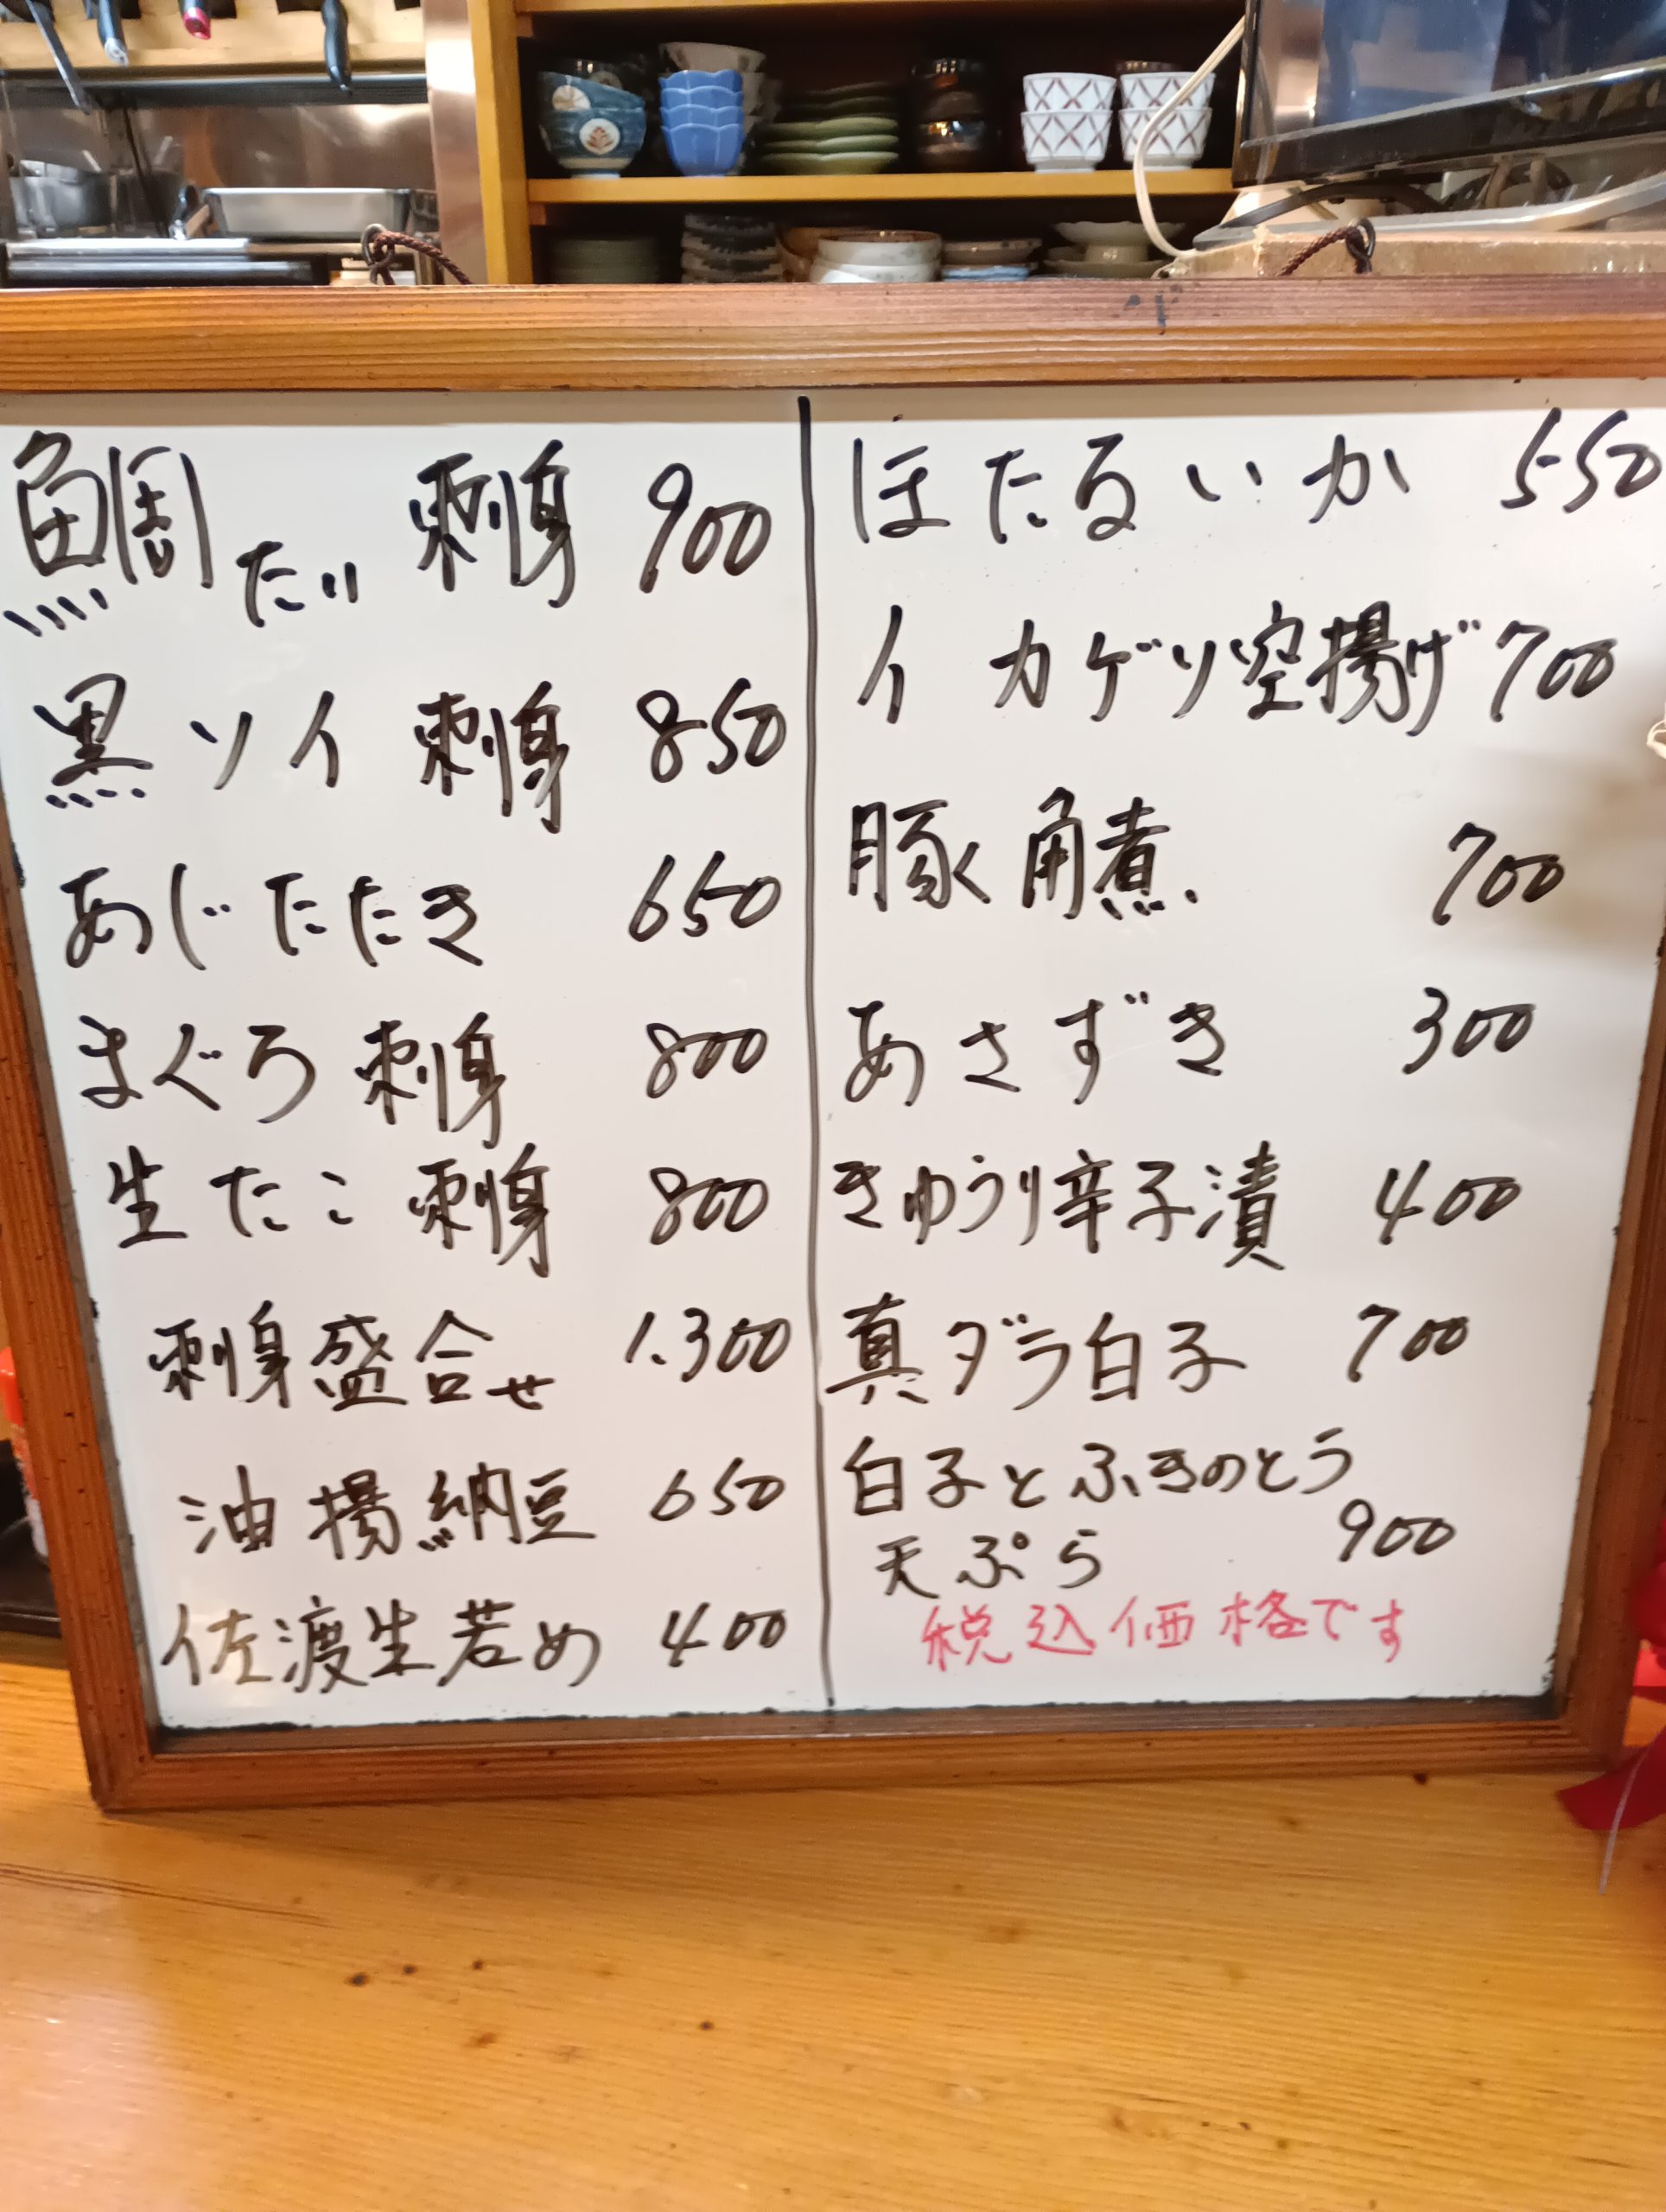 鯛たい 刺身 900
黒ソイ 刺身 850
あじたたき 650
まぐろ 刺身 800
生たこ 刺身 800
刺身盛合せ 1.300
油揚納豆 650
佐渡生若め 400
ほたるいか 550
イカゲソ空揚げ 700
豚角煮 700
あさずき 300
きゅうり辛子漬 400
真ダラ白子 700
白子とふきのとう
天ぷら 900
税込価格です